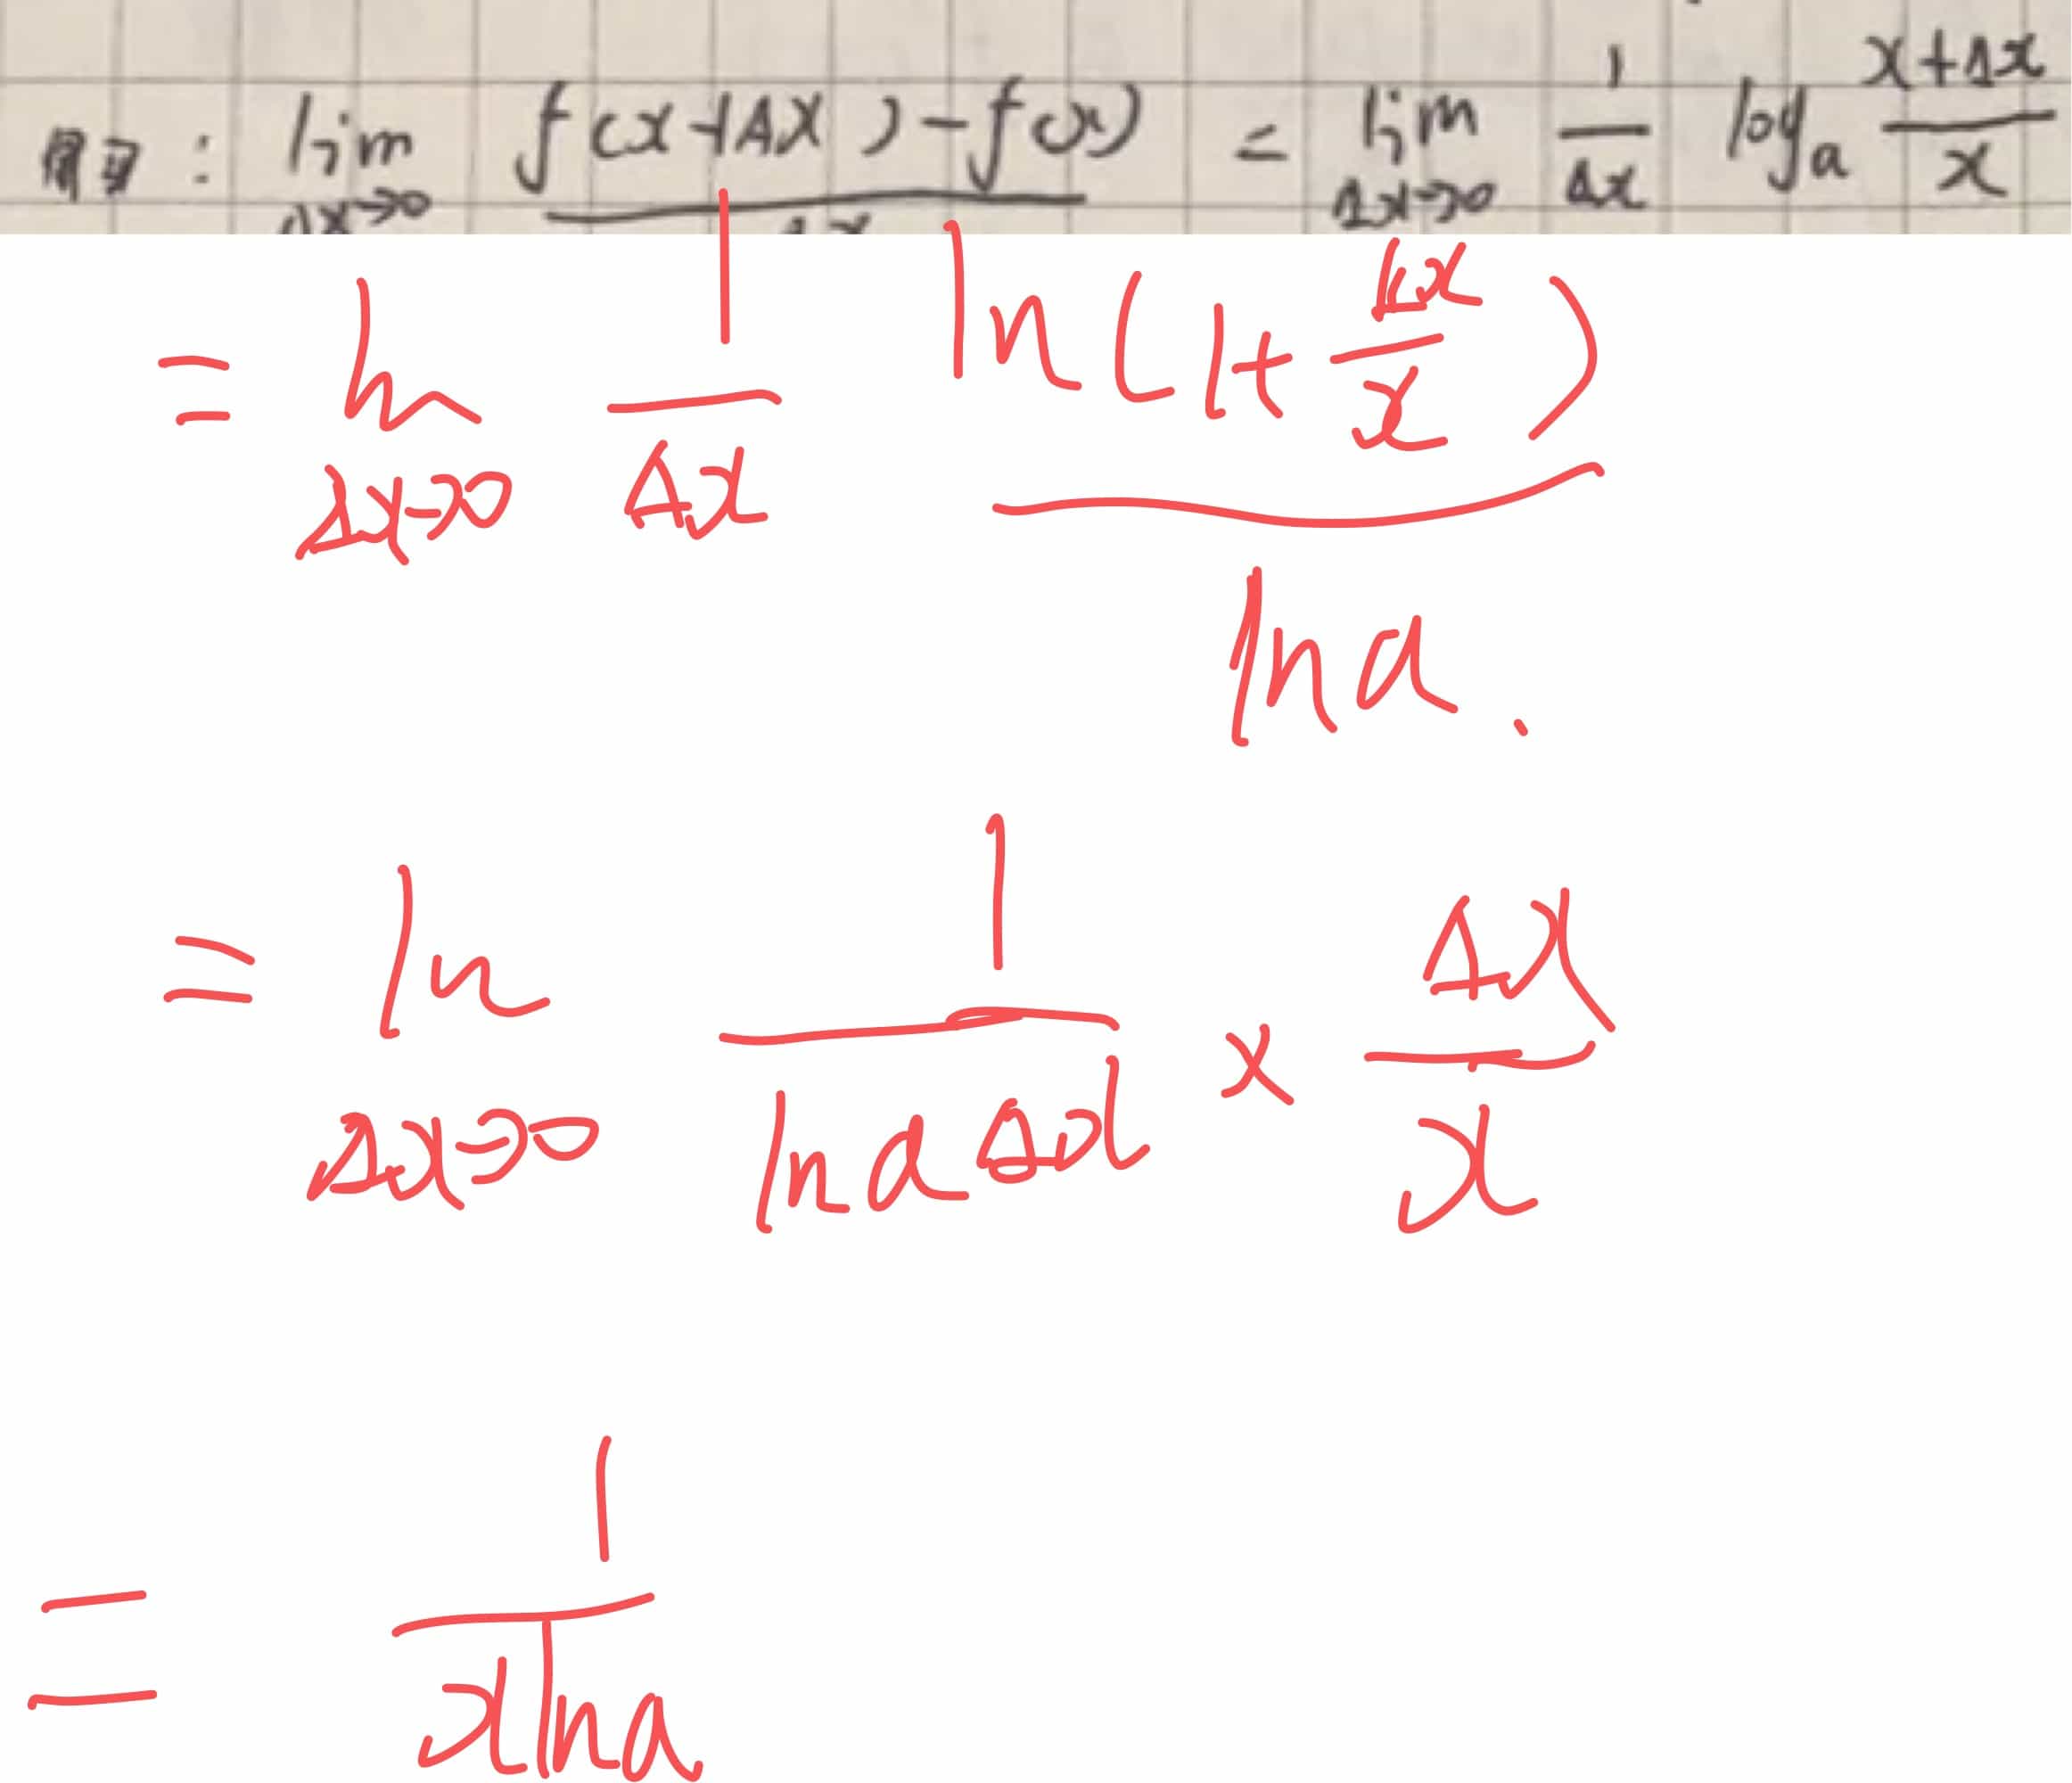 : lim Δx→0 f(x+Δx)-f(x) / Δx = lim Δx→0 1/Δx log_a (x+Δx)/x
= lim Δx→0 1/Δx ln(1+Δx/x) / ln a.
= lim Δx→0 1/(ln a Δx) × Δx/x
= 1/(x ln a)